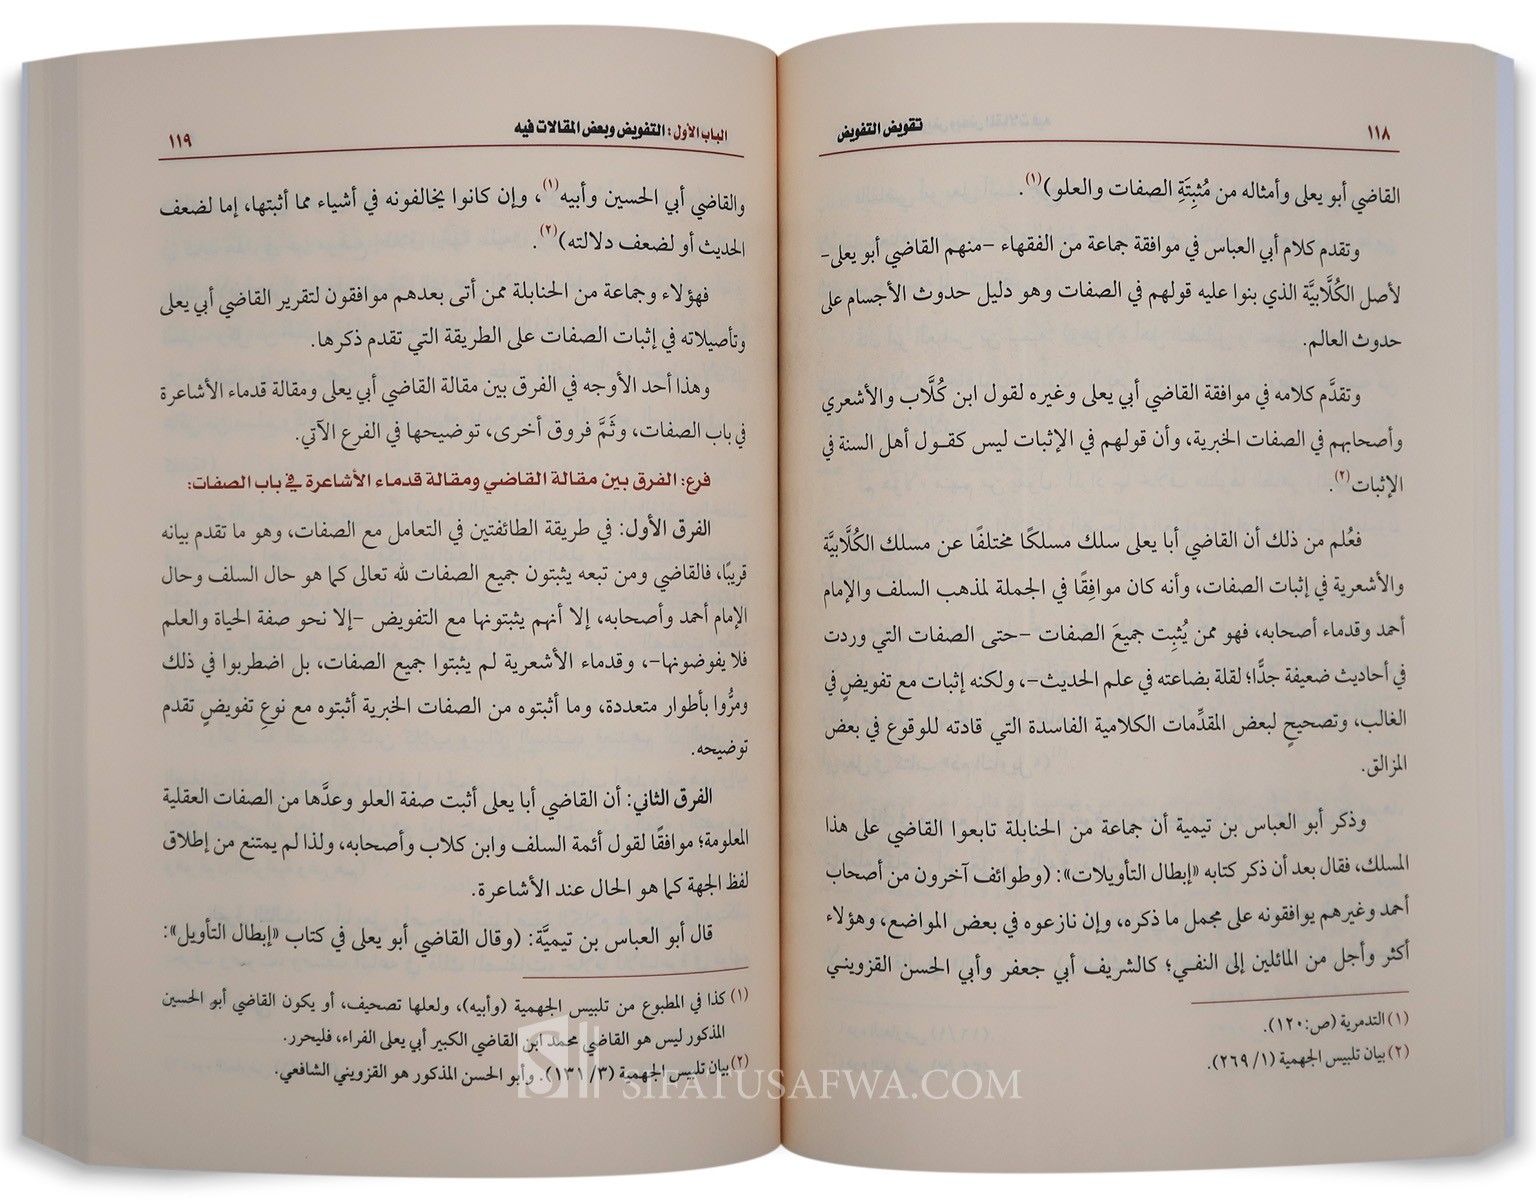 ١١٨
تقويض التفويض
القاضي أبو يعلى وأمثاله من مُثبِتَةِ الصفات والعلو)(١).
وتقدم كلام أبي العباس في موافقة جماعة من الفقهاء -منهم القاضي أبو يعلى-
لأصل الكُلَّابيَّة الذي بنوا عليه قولهم في الصفات وهو دليل حدوث الأجسام على
حدوث العالم.
وتقدَّم كلامه في موافقة القاضي أبي يعلى وغيره لقول ابن كُلَّاب والأشعري
وأصحابهم في الصفات الخبرية، وأن قولهم في الإثبات ليس كقول أهل السنة في
الإثبات(٢).
فعُلم من ذلك أن القاضي أبا يعلى سلك مسلكًا مختلفًا عن مسلك الكُلَّابيَّة
والأشعرية في إثبات الصفات، وأنه كان موافِقًا في الجملة لمذهب السلف والإمام
أحمد وقدماء أصحابه، فهو ممن يُثبِت جميعَ الصفات -حتى الصفات التي وردت
في أحاديث ضعيفة جدًّا؛ لقلة بضاعته في علم الحديث-، ولكنه إثبات مع تفويضٍ في
الغالب، وتصحيحٍ لبعض المقدِّمات الكلامية الفاسدة التي قادته للوقوع في بعض
المزالق.
وذكر أبو العباس بن تيمية أن جماعة من الحنابلة تابعوا القاضي على هذا
المسلك، فقال بعد أن ذكر كتابه «إبطال التأويلات»: (وطوائف آخرون من أصحاب
أحمد وغيرهم يوافقونه على مجمل ما ذكره، وإن نازعوه في بعض المواضع، وهؤلاء
أكثر وأجل من المائلين إلى النفـي؛ كالشريف أبي جعفر وأبي الحسن القزويني
(١) التدمرية (ص:١٢٠).
(٢) بيان تلبيس الجهمية (١/ ٢٦٩).
الباب الأول: التفويض وبعض المقالات فيه
١١٩
والقاضي أبي الحسين وأبيه(١)، وإن كانوا يخالفونه في أشياء مما أثبتها، إما لضعف
الحديث أو لضعف دلالته)(٢).
فهؤلاء وجماعة من الحنابلة ممن أتى بعدهم موافقون لتقرير القاضي أبي يعلى
وتأصيلاته في إثبات الصفات على الطريقة التي تقدم ذكرها.
وهذا أحد الأوجه في الفرق بين مقالة القاضي أبي يعلى ومقالة قدماء الأشاعرة
في باب الصفات، وثَمَّ فروق أخرى، توضيحها في الفرع الآتي.
فرع: الفرق بين مقالة القاضي ومقالة قدماء الأشاعرة في باب الصفات:
الفرق الأول: في طريقة الطائفتين في التعامل مع الصفات، وهو ما تقدم بيانه
قريبًا، فالقاضي ومن تبعه يثبتون جميع الصفات لله تعالى كما هو حال السلف وحال
الإمام أحمد وأصحابه، إلا أنهم يثبتونها مع التفويض -إلا نحو صفة الحياة والعلم
فلا يفوضونها-، وقدماء الأشعرية لم يثبتوا جميع الصفات، بل اضطربوا في ذلك
ومرُّوا بأطوار متعددة، وما أثبتوه من الصفات الخبرية أثبتوه مع نوعِ تفويضٍ تقدم
توضيحه.
الفرق الثاني: أن القاضي أبا يعلى أثبت صفة العلو وعدَّها من الصفات العقلية
المعلومة؛ موافقًا لقول أئمة السلف وابن كلاب وأصحابه، ولذا لم يمتنع من إطلاق
لفظ الجهة كما هو الحال عند الأشاعرة.
قال أبو العباس بن تيميَّة: (وقال القاضي أبو يعلى في كتاب «إبطال التأويل»:
(١) كذا في المطبوع من تلبيس الجهمية (وأبيه)، ولعلها تصحيف، أو يكون القاضي أبو الحسين
المذكور ليس هو القاضي محمد ابن القاضي الكبير أبي يعلى الفراء، فليحرر.
(٢) بيان تلبيس الجهمية (٣/ ١٣١). وأبو الحسن المذكور هو القزويني الشافعي.
SIFATUSAFWA.COM